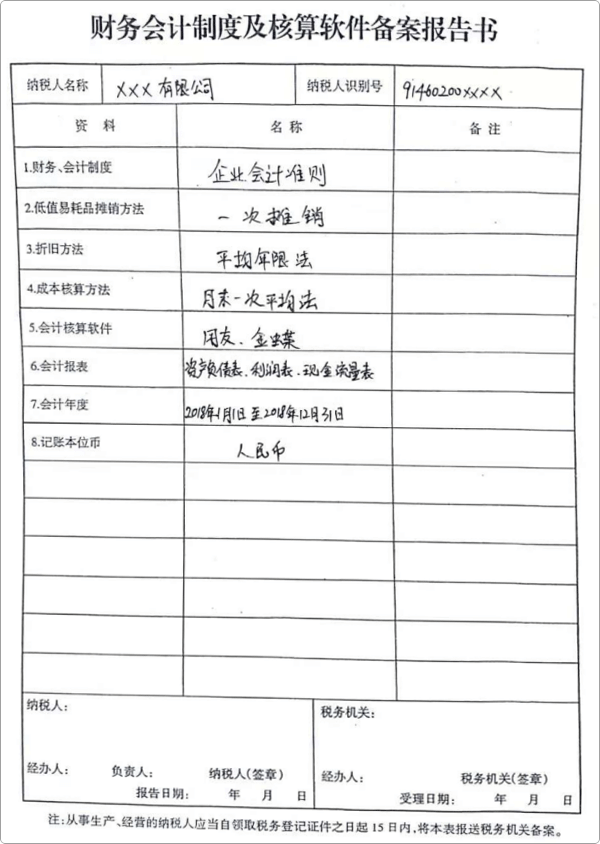 财务会计制度及核算软件备案报告书
纳税人名称 XXX有限公司 纳税人识别号 91460200XXXX
资 料 名 称 备 注
1.财务、会计制度 企业会计准则
2.低值易耗品摊销方法 一次摊销
3.折旧方法 平均年限法
4.成本核算方法 月末一次平均法
5.会计核算软件 用友、金蝶
6.会计报表 资产负债表、利润表、现金流量表
7.会计年度 2018年1月1日至2018年12月31日
8.记账本位币 人民币
纳税人： 税务机关：
经办人： 负责人： 纳税人（签章） 经办人： 税务机关（签章）
报告日期： 年 月 日 受理日期： 年 月 日
注：从事生产、经营的纳税人应当自领取税务登记证件之日起15日内，将本表报送税务机关备案。